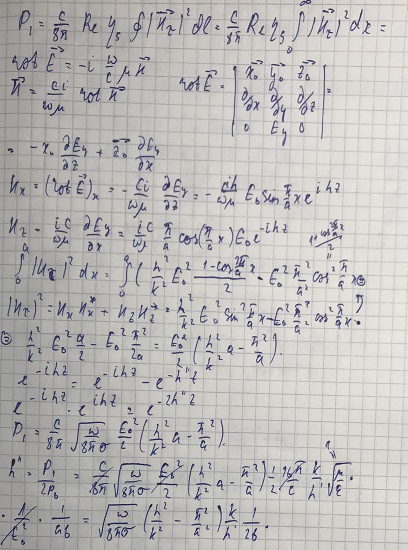 P₁ = c/8π Re ζ_s ∮ |H⃗_τ|² dl = c/8π Re ζ_s ∫₀^∞ |H⃗_τ|² dx =
rot E⃗ = -i ω/c μ H⃗
H⃗ = ci/ωμ rot H⃗ rot E⃗ = | x⃗₀ y⃗₀ z⃗₀ ; ∂/∂x ∂/∂y ∂/∂z ; 0 E_y 0 | =
= -x₀ ∂E_y/∂z + z⃗₀ ∂E_y/∂x
H_x = (rot E⃗)_x = - ci/ωμ ∂E_y/∂z = - ch/ωμ E₀ sin π/a x e^{ihz}
H_z = ic/ωμ ∂E_y/∂x = ic/ωμ π/a cos(π/a x) E₀ e^{-ihz}
∫₀^a |H_τ|² dx = ∫₀^a ( h²/k² E₀² (1-cos 2π/a x)/2 · E₀² π²/a² cos² π/a x ⊜
|H_τ|² = H_x H_x* + H_z H_z* = h²/k² E₀² sin² π/a x - E₀² π²/a² cos² π/a x.
⊜ h²/k² E₀² a/2 - E₀² π²/2a = E₀²/2 ( h²/k² a - π²/a ).
e^{-ihz} = e^{-ihz} - e^{-h''z}
e^{-ihz} · e^{ihz} = e^{-2h''z}
P₁ = c/8π √(ω/8πσ) E₀²/2 ( h²/k² a - π²/a ).
h'' = P₁/2P₀ = c/8π √(ω/8πσ) E₀²/2 ( h²/k² a - π²/a ) · 1/2 16π/c k/h' √(μ/ε) ·
· 1/E₀² · 1/ab = √(ω/8πσ) ( h²/k² - π²/a² ) k/h 1/2b .